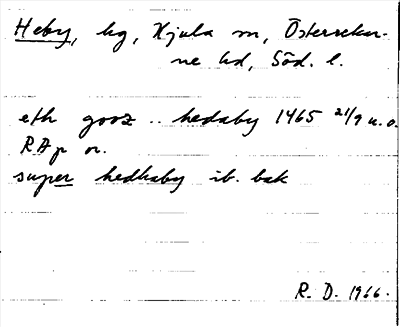 Heby, hg, Kjula sn, Österrekar-
ne hd, Söd. l.
eth gooz .. hedaby 1465 21/9 u.o.
RAp or.
super hedhaby ib. bak
R. D. 1966.